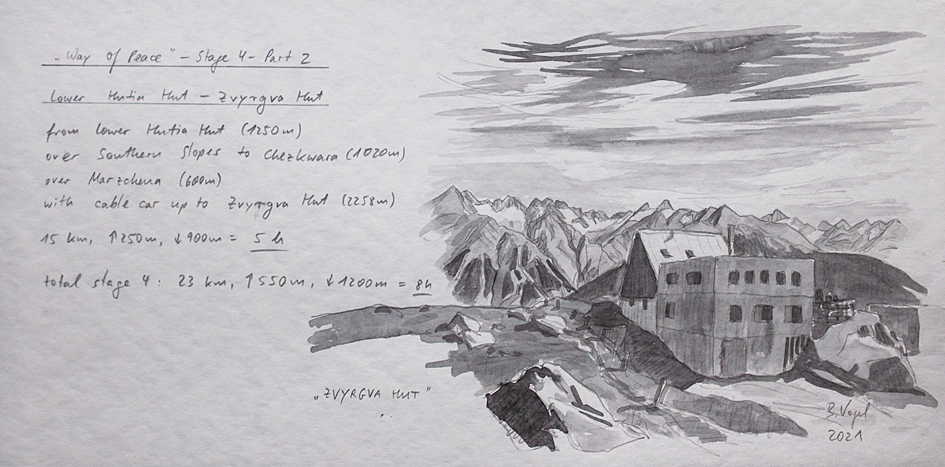 „Way of Peace" – Stage 4 – Part 2
Lower Hutia Hut – Zvyrgva Hut
from lower Hutia Hut (1250m)
over Southern Slopes to Chezkwara (1020m)
over Marzchena (600m)
with cable car up to Zvyrgva Hut (2258m)
15 km, ↑250m, ↓900m = 5h
total stage 4: 23 km, ↑550m, ↓1200m = 8h
„ZVYRGVA HUT"
B. Vogel
2021